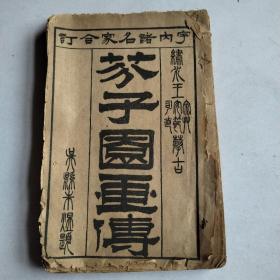 宇內諸名家合訂
繡水王宓草安節司直摹古
芥子園畫傳
吳縣朱湜題